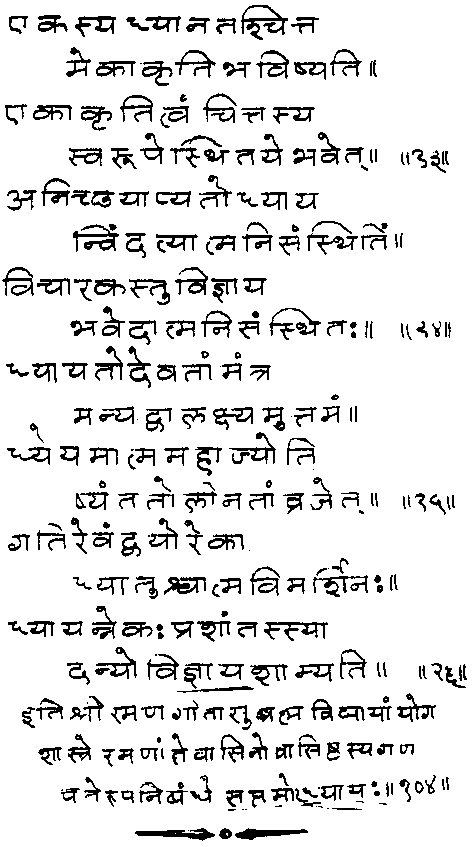 एकस्य ध्यानतश्चित्त
मेकाकृति भविष्यति॥
एकाकृतित्वं चित्तस्य
स्वरूपे स्थितये भवेत्॥ ॥२३॥
अनिच्छयाप्यतो ध्याय
न्विंदत्यात्मनि संस्थितिं॥
विचारकस्तु विज्ञाय
भवेदात्मनि संस्थितः॥ ॥२४॥
ध्यायतो देवतां मंत्र
मन्यद्वा लक्ष्यमुत्तमं॥
ध्येयमात्ममहाज्योति
ष्यंततो लीनतां व्रजेत्॥ ॥२५॥
गतिरेवं द्वयोरेका
ध्यातुश्चात्मविमर्शिनः॥
ध्यायन्नेकः प्रशांतस्स्या
दन्यो विज्ञाय शाम्यति॥ ॥२६॥
इति श्रीरमणगीतासु ब्रह्मविद्यायां योग
शास्त्रे रमणांतेवासिनो वासिष्ठस्य गण
पतेरुपनिबंधे सप्तमोध्यायः॥१०४॥